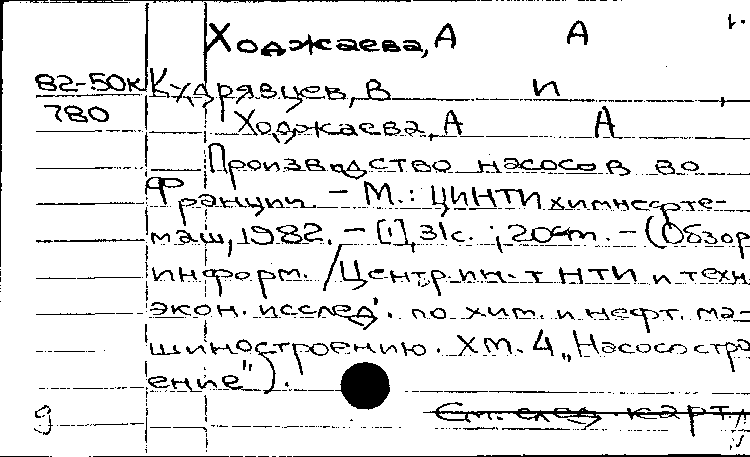 Ходжаева, А А 1.
82-50к Кудрявцев, В И
780 Ходжаева, А А
Производство насосов во
Франции. – М.: ЦИНТИхимнефте-
маш, 1982. – [1], 31с. ; 20см. – (Обзор
информ. /Центр. ин-т НТИ и техн
экон. исслед. по хим. и нефт. ма-
шиностроению. ХМ. 4 „Насосостро
ение").
g См. след. карт.